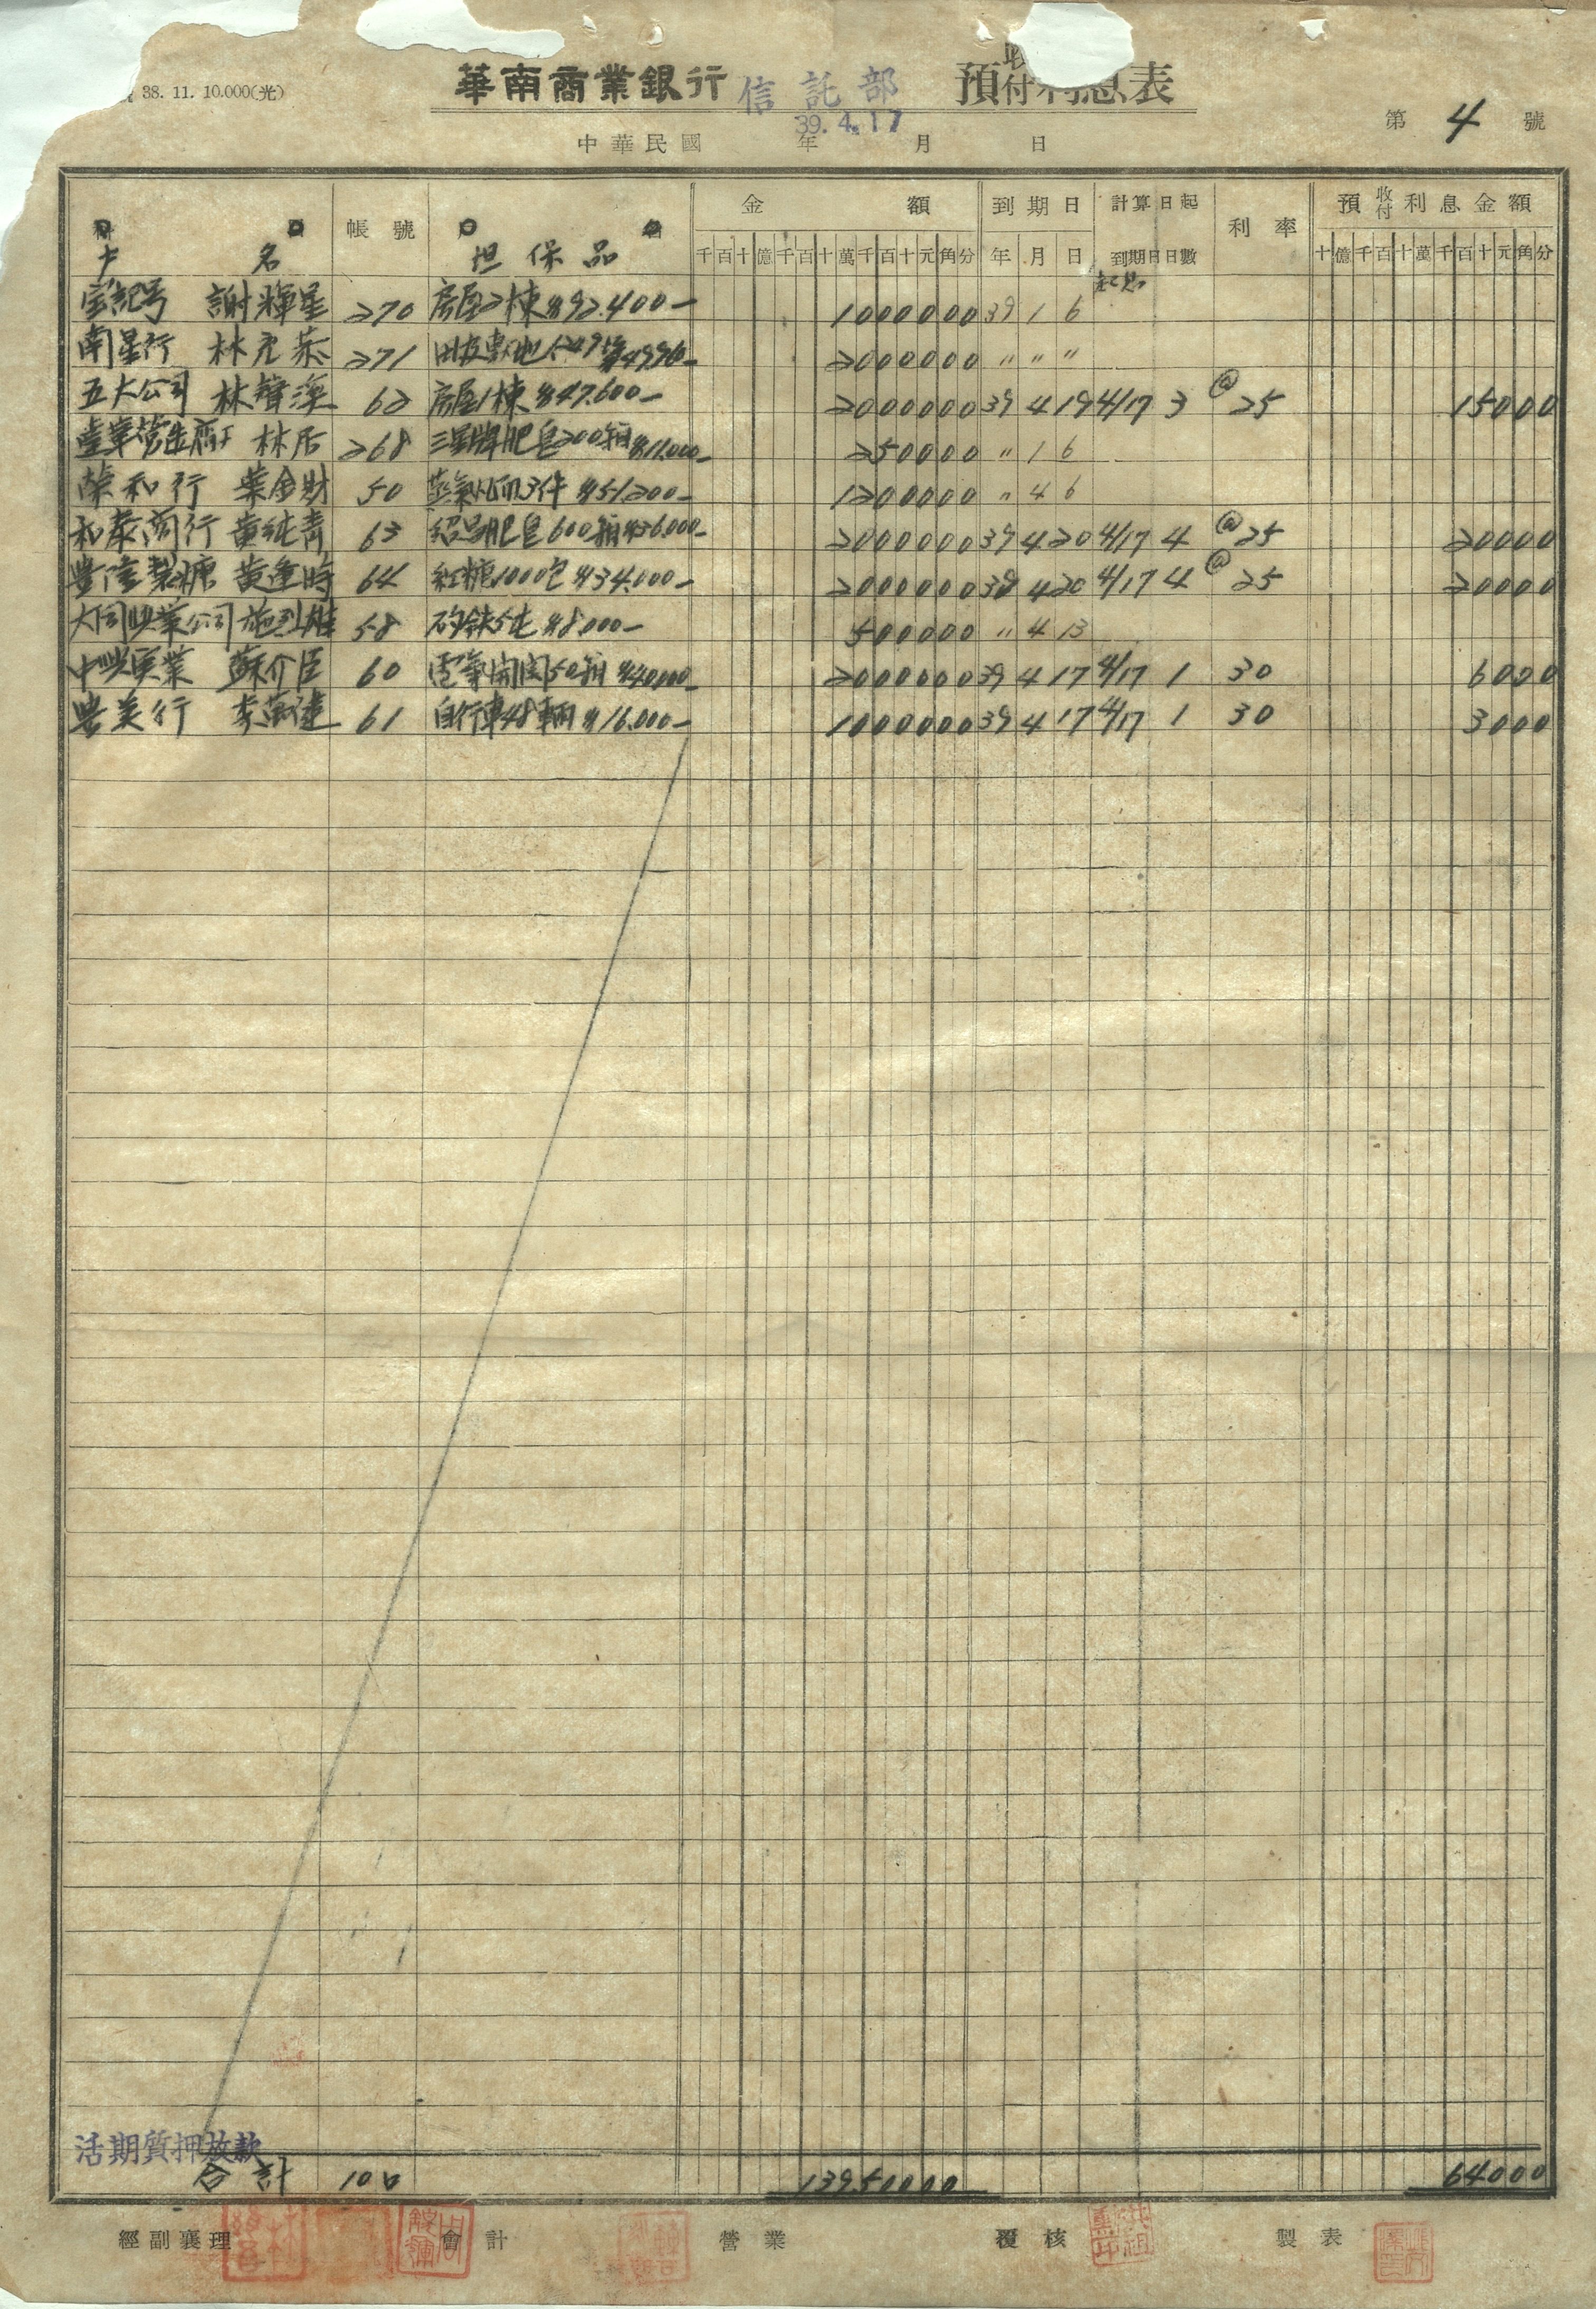 38. 11. 10.000(光)
華南商業銀行 信託部 預收付利息表
39. 4. 17
中華民國 年 月 日
第 4 號
戶 名 帳號 担保品 金額 到期日 計算日起到期日日數 利率 預收付利息金額
千百十億千百十萬千百十元角分 年 月 日 十億千百十萬千百十元角分
宝記号 謝輝星 270 房屋2棟 $92.400- 10000000 39 1 6
南星行 林 271 20000000 〃 〃 〃
五大公司 林 62 房屋1棟 $47.600- 20000000 39 4 19 4/17 3 @25 15000
林 268 三星牌肥皂200箱 $11.000- 2500000 〃 1 6
榮和行 葉金財 50 3件 $51.200- 12000000 〃 4 6
和泰商行 黃純青 63 肥皂600箱 $36.000- 20000000 39 4 20 4/17 4 @25 20000
豐隆製糖 黃逢時 64 紅糖1000包 $34.000- 20000000 39 4 20 4/17 4 @25 20000
大同興業公司 施 58 $8.000- 5000000 〃 4 13
中興實業 蘇介臣 60 電氣開関50箱 $40.000- 20000000 39 4 17 4/17 1 30 6000
美行 李 61 自行車48輛 $16.000- 10000000 39 4 17 4/17 1 30 3000
活期質押放款
合計 10口 139.50000 64000
經副襄理 會計 營業 覆核 製表